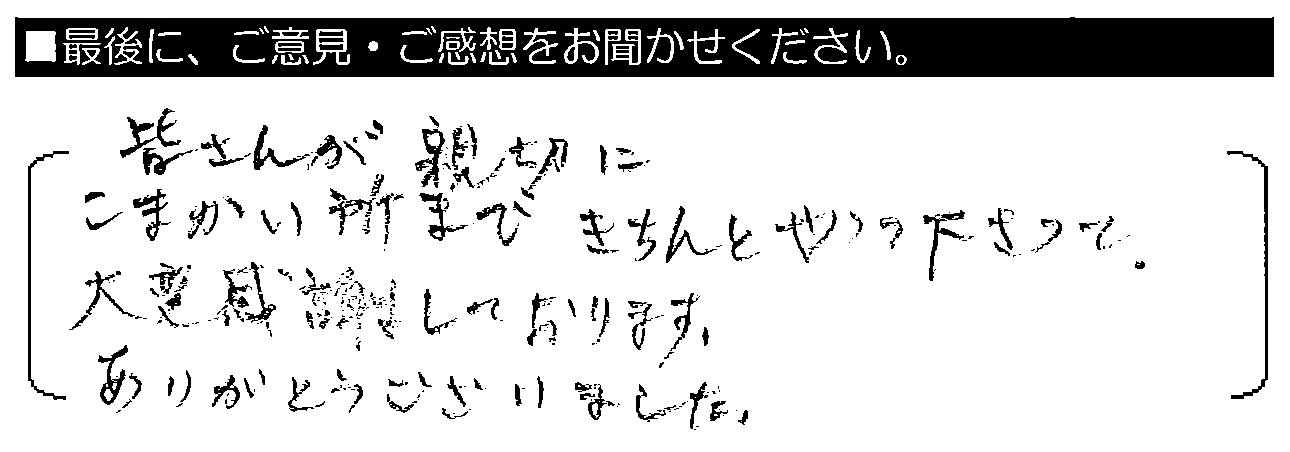 ■最後に、ご意見・ご感想をお聞かせください。
皆さんが親切に
こまかい所まで きちんとやって下さって。
大変感謝しております。
ありがとうございました。